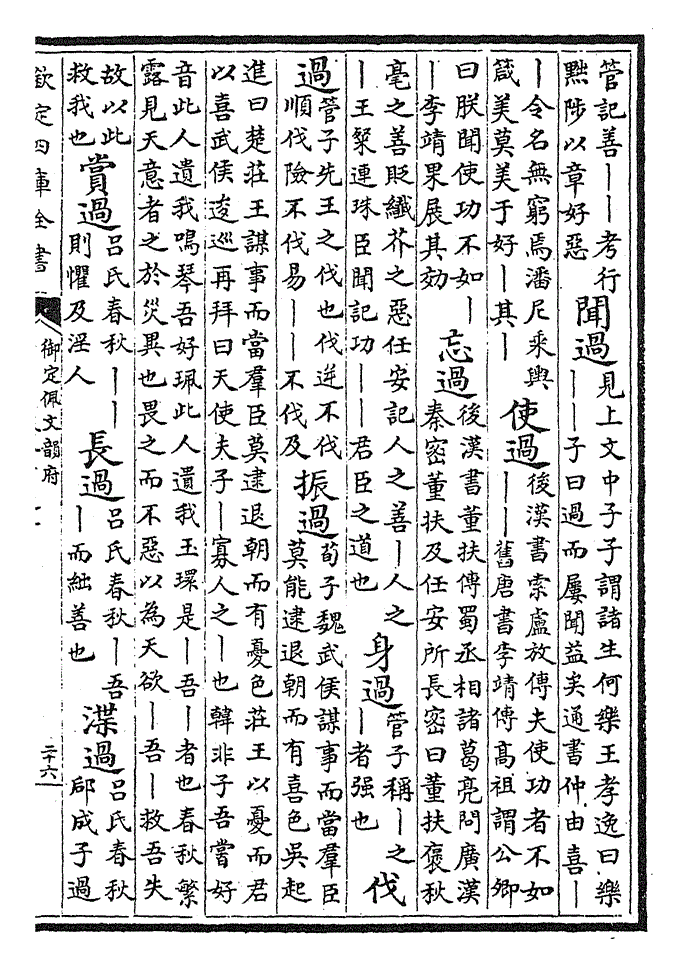 管記善｜｜考行
黜陟以章好惡
聞過
見上文中子子謂諸生何樂王孝逸曰樂
｜｜子曰過而屢聞益矣通書仲由喜｜
｜令名無窮焉潘尼乘輿
箴美莫美于好｜其｜
使過
後漢書索盧放傳夫使功者不如
｜｜舊唐書李靖傳高祖謂公卿
曰朕聞使功不如｜
｜李靖果展其効
忘過
後漢書董扶傳蜀丞相諸葛亮問廣漢
秦密董扶及任安所長密曰董扶褒秋
毫之善貶纖芥之惡任安記人之善｜人之
｜王粲連珠臣聞記功｜｜君臣之道也
身過
管子稱｜之
｜者强也
伐
過
管子先王之伐也伐逆不伐
順伐險不伐易｜｜不伐及
振過
荀子魏武侯謀事而當羣臣
莫能逮退朝而有喜色吳起
進曰楚莊王謀事而當羣臣莫逮退朝而有憂色莊王以憂而君
以喜武侯逡巡再拜曰天使夫子｜寡人之｜也韓非子吾嘗好
音此人遺我鳴琴吾好珮此人遺我玉環是｜吾｜者也春秋繁
露見天意者之於災異也畏之而不惡以為天欲｜吾｜救吾失
故以此
救我也
賞過
呂氏春秋｜｜
則懼及淫人
長過
呂氏春秋｜吾
｜而絀善也
渫過
呂氏春秋
郈成子過
欽定四庫全書
御定佩文韻府
二十六